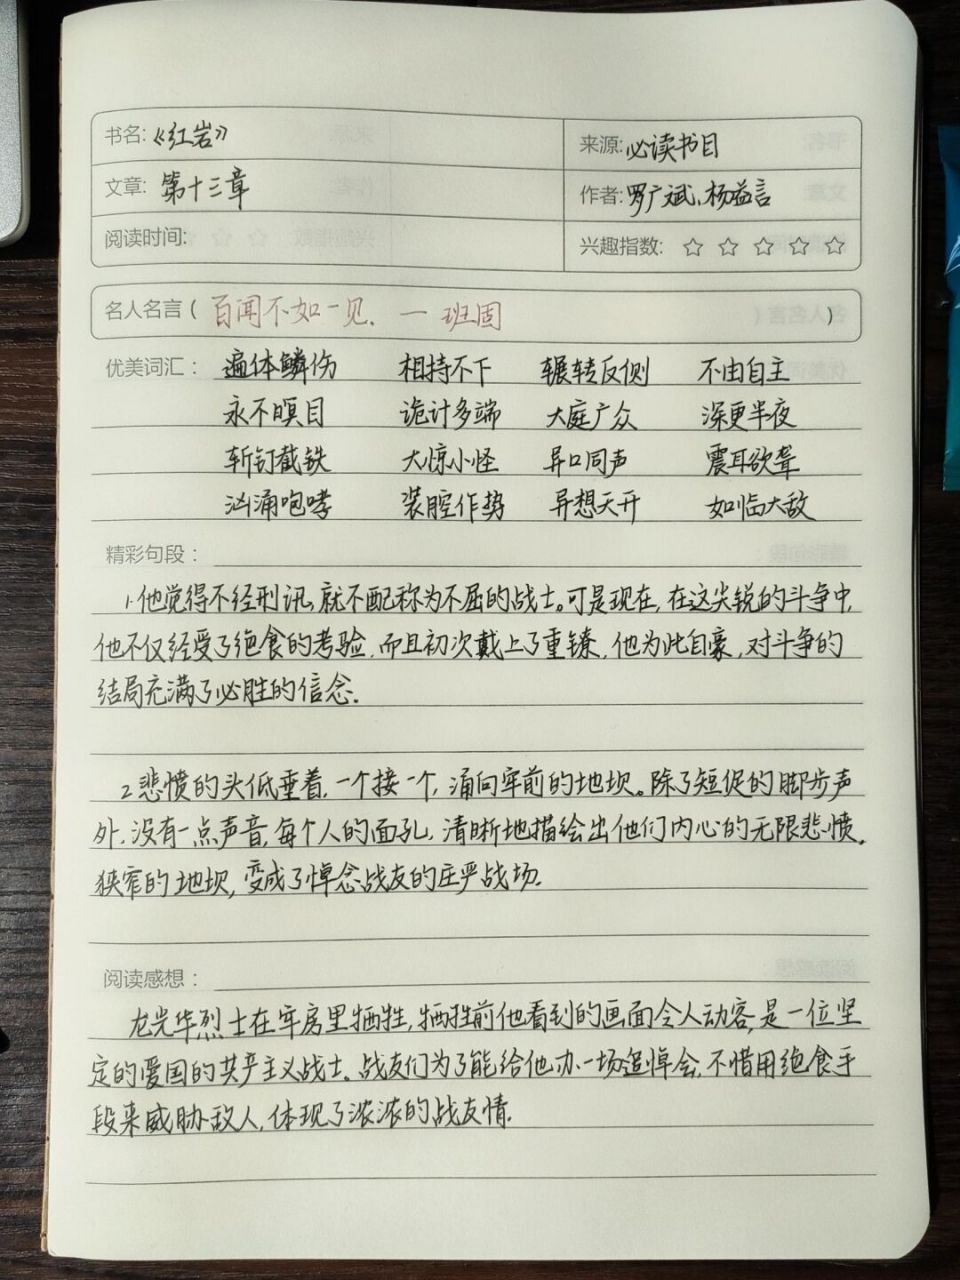 书名:《红岩》 来源:必读书目
文章:第十三章 作者:罗广斌、杨益言
阅读时间: 兴趣指数:☆ ☆ ☆ ☆ ☆
名人名言(百闻不如一见. — 班固)
优美词汇: 遍体鳞伤 相持不下 辗转反侧 不由自主
永不瞑目 诡计多端 大庭广众 深更半夜
斩钉截铁 大惊小怪 异口同声 震耳欲聋
汹涌咆哮 装腔作势 异想天开 如临大敌
精彩句段:
1.他觉得不经刑讯,就不配称为不屈的战士。可是现在,在这尖锐的斗争中,
他不仅经受了绝食的考验,而且初次戴上了重镣,他为此自豪,对斗争的
结局充满了必胜的信念.
2.悲愤的头低垂着,一个接一个,涌向牢前的地坝。除了短促的脚步声
外,没有一点声音,每个人的面孔,清晰地描绘出他们内心的无限悲愤.
狭窄的地坝,变成了悼念战友的庄严战场.
阅读感想:
龙光华烈士在牢房里牺牲,牺牲前他看到的画面令人动容,是一位坚
定的爱国的共产主义战士。战友们为了能给他办一场追悼会,不惜用绝食手
段来威胁敌人,体现了浓浓的战友情.